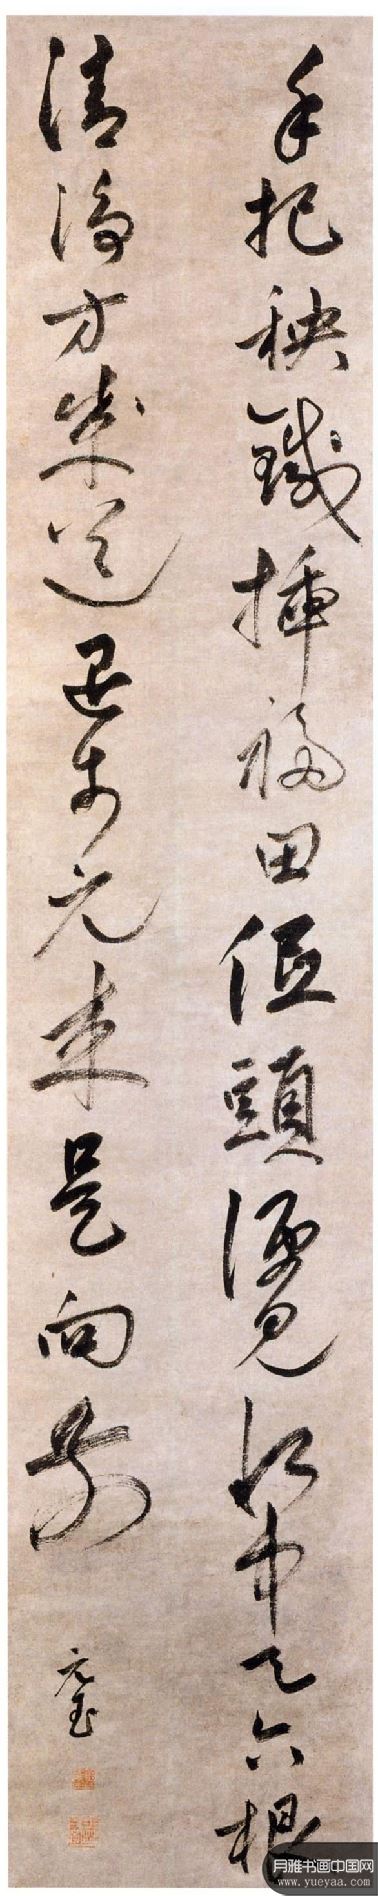 手把秧鍼插福田低頭便見水中天六根
清淨方成道退步元來是向前
元玉
月雅书画中国网
www.yueyaa.com